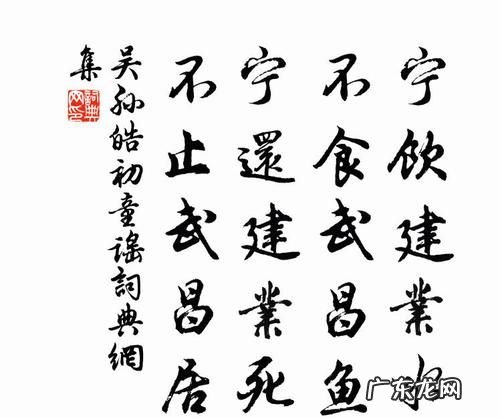 宁饮建業
不食武昌鱼
宁還建業死
不止武昌居
吴孙皓初童謠詞典網
集
詞典
网印
广东龙网